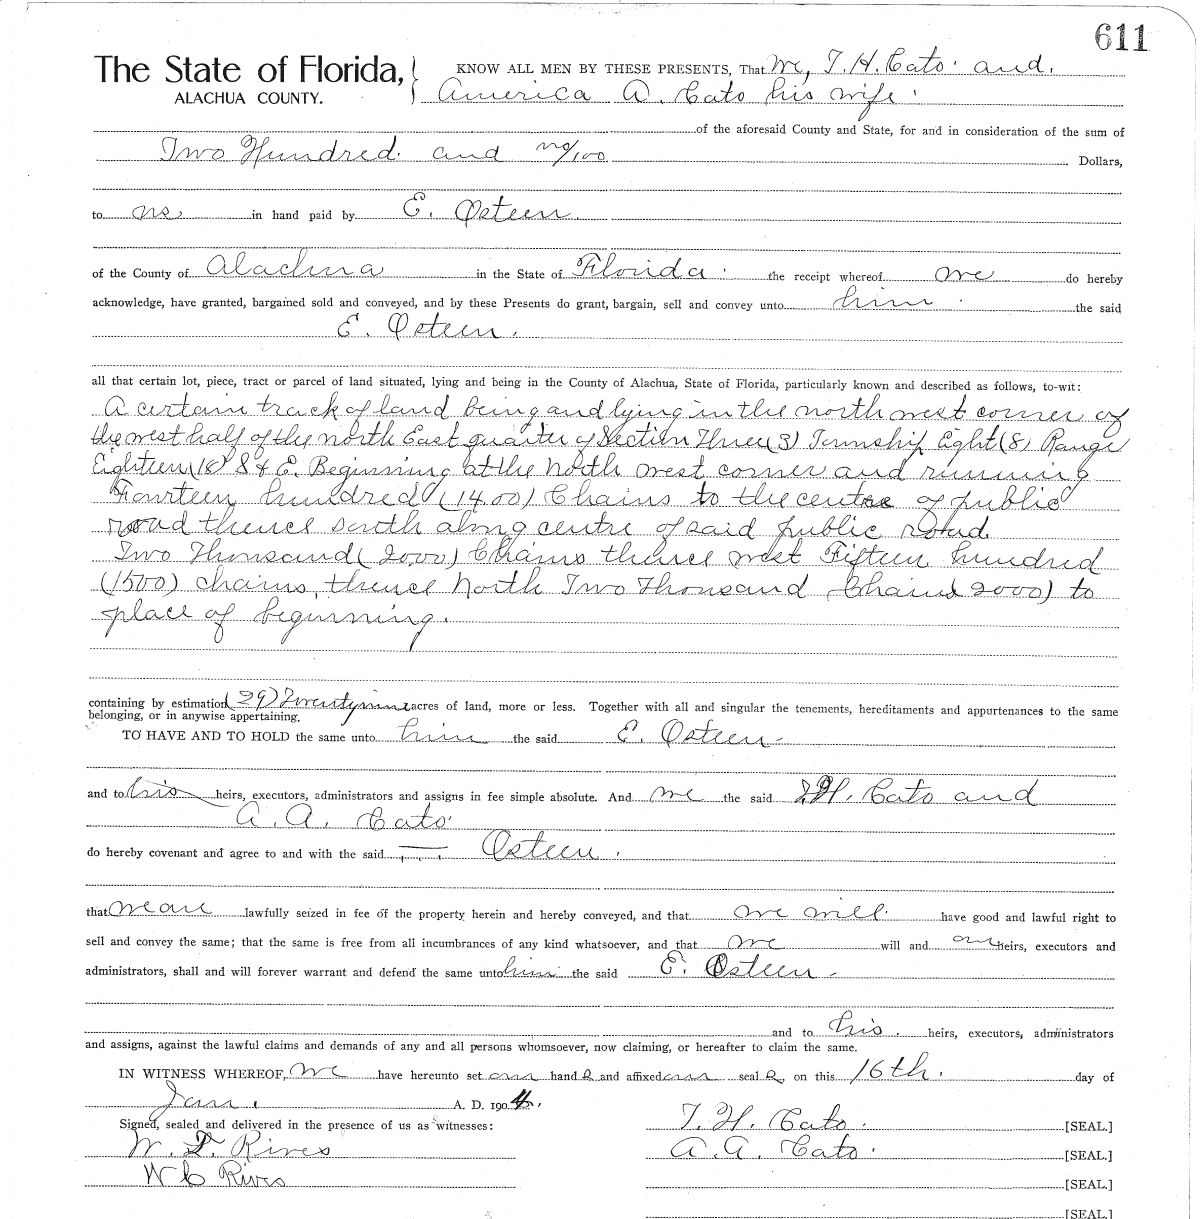 611
The State of Florida, } KNOW ALL MEN BY THESE PRESENTS, That We, T. H. Cato and
ALACHUA COUNTY. America A. Cato his wife
of the aforesaid County and State, for and in consideration of the sum of
Two Hundred and no/100 Dollars,
to us in hand paid by E. Osteen
of the County of Alachua in the State of Florida the receipt whereof we do hereby
acknowledge, have granted, bargained sold and conveyed, and by these Presents do grant, bargain, sell and convey unto him the said
E. Osteen.
all that certain lot, piece, tract or parcel of land situated, lying and being in the County of Alachua, State of Florida, particularly known and described as follows, to-wit:
A certain track of land being and lying in the north west corner of
the west half of the north East quarter of Section Three (3) Township Eight (8) Range
Eighteen (18) S & E. Beginning at the North west corner and running
Fourteen hundred (1400) Chains to the centre of public
road thence south along centre of said public road
Two Thousand (2000) Chains thence west Fifteen hundred
(1500) chains, thence North Two Thousand Chains 2000) to
place of beginning.
containing by estimation (29) Twentynine acres of land, more or less. Together with all and singular the tenements, hereditaments and appurtenances to the same
belonging, or in anywise appertaining.
TO HAVE AND TO HOLD the same unto him the said E. Osteen
and to his heirs, executors, administrators and assigns in fee simple absolute. And we the said T.H. Cato and
A. A. Cato
do hereby covenant and agree to and with the said Osteen.
that we are lawfully seized in fee of the property herein and hereby conveyed, and that we will have good and lawful right to
sell and convey the same; that the same is free from all incumbrances of any kind whatsoever, and that we will and our heirs, executors and
administrators, shall and will forever warrant and defend the same unto him the said E. Osteen.
and to his heirs, executors, administrators
and assigns, against the lawful claims and demands of any and all persons whomsoever, now claiming, or hereafter to claim the same.
IN WITNESS WHEREOF, We have hereunto set our hands and affixed our seals, on this 16th. day of
Jan. A. D. 1904.
Signed, sealed and delivered in the presence of us as witnesses: T. H. Cato [SEAL.]
W. Rives A. A. Cato [SEAL.]
W C Rives [SEAL.]
[SEAL.]